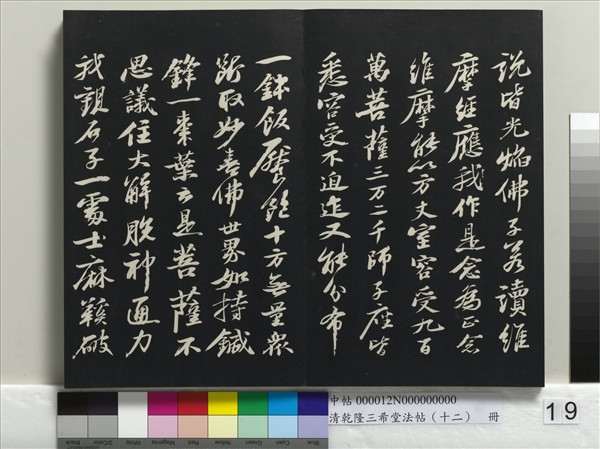 說皆光焰佛子若讀維
摩經應我作是念為正念
維摩能以方丈室容受九百
萬菩薩三万二千師子座皆
悉容受不迫迮又能分布
一鉢飯饜飽十方無量眾
斷取妙喜佛世界如持鍼
鋒一棗葉云是菩薩不
思議住大解脫神通力
我觀石子一處士麻鞵破
中帖 000012N000000000
清乾隆三希堂法帖（十二） 冊
19
Black
3/Color
White
Magenta
Red
Yellow
Green
Cyan
Blue